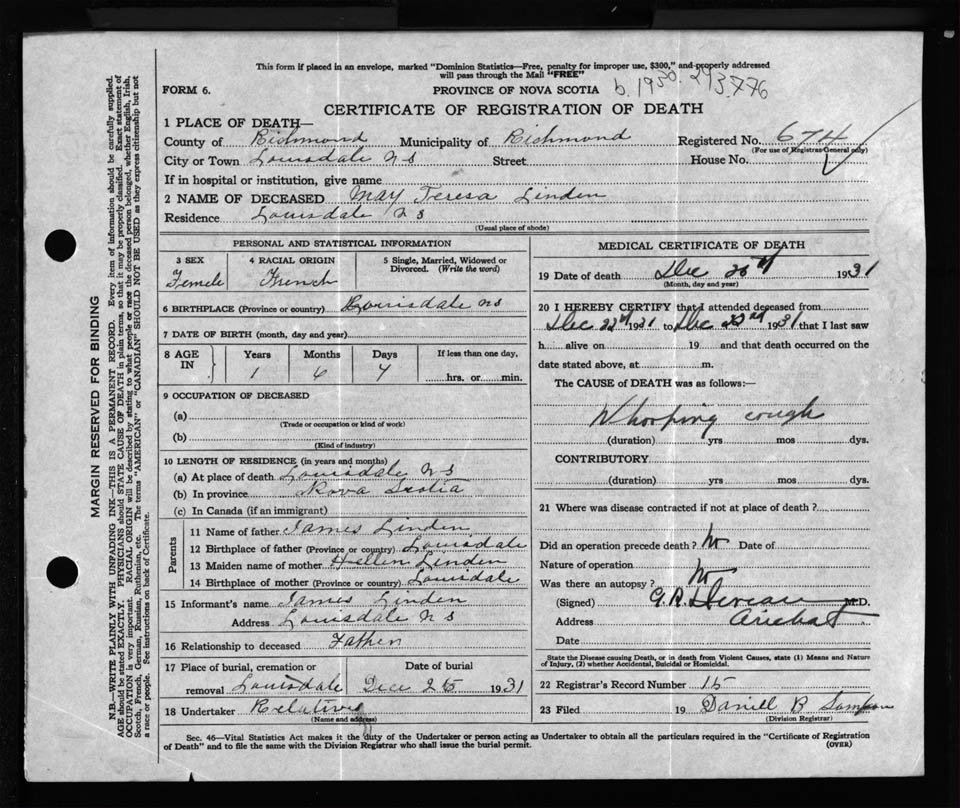 This form if placed in an envelope, marked "Dominion Statistics—Free, penalty for improper use, $300," and properly addressed
will pass through the Mail "FREE"
FORM 6.
PROVINCE OF NOVA SCOTIA
b. 1930. 293776
CERTIFICATE OF REGISTRATION OF DEATH
1 PLACE OF DEATH—
County of Richmond Municipality of Richmond Registered No. 674
(For use of Registrar-General only)
City or Town Louisdale N S Street House No.
If in hospital or institution, give name
2 NAME OF DECEASED May Teresa Linden
Residence Louisdale N S
(Usual place of abode)
PERSONAL AND STATISTICAL INFORMATION
3 SEX 4 RACIAL ORIGIN 5 Single, Married, Widowed or
Divorced. (Write the word)
Female French
6 BIRTHPLACE (Province or country) Louisdale NS
7 DATE OF BIRTH (month, day and year)
8 AGE IN Years Months Days If less than one day,
1 6 7 hrs. or min.
9 OCCUPATION OF DECEASED
(a)
(Trade or occupation or kind of work)
(b)
(Kind of industry)
10 LENGTH OF RESIDENCE (in years and months)
(a) At place of death Louisdale N S
(b) In province Nova Scotia
(c) In Canada (if an immigrant)
Parents
11 Name of father James Linden
12 Birthplace of father (Province or country) Louisdale
13 Maiden name of mother Hellen Linden
14 Birthplace of mother (Province or country) Louisdale
15 Informant's name James Linden
Address Louisdale N S
16 Relationship to deceased Father
17 Place of burial, cremation or Date of burial
removal Louisdale Dec 25 1931
18 Undertaker Relatives
(Name and address)
MEDICAL CERTIFICATE OF DEATH
19 Date of death Dec 1931
(Month, day and year)
20 I HEREBY CERTIFY that I attended deceased from
Dec 22nd 1931 to Dec 23rd 1931 that I last saw
h alive on 19 and that death occurred on the
date stated above, at m.
The CAUSE of DEATH was as follows:—
Whooping cough
(duration) yrs mos dys.
CONTRIBUTORY
(duration) yrs mos dys.
21 Where was disease contracted if not at place of death?
Did an operation precede death? No Date of
Nature of operation
Was there an autopsy? No
(Signed) G. R. Deveau M.D.
Address Arichat
Date
State the Disease causing Death, or in death from Violent Causes, state (1) Means and Nature
of Injury, (2) whether Accidental, Suicidal or Homicidal.
22 Registrar's Record Number 15
23 Filed 19 Daniell B Sampson
(Division Registrar)
Sec. 46—Vital Statistics Act makes it the duty of the Undertaker or person acting as Undertaker to obtain all the particulars required in the "Certificate of Registration
of Death" and to file the same with the Division Registrar who shall issue the burial permit.
(OVER)
MARGIN RESERVED FOR BINDING
N.B.—WRITE PLAINLY WITH UNFADING INK—THIS IS A PERMANENT RECORD. Every item of information should be carefully supplied.
AGE should be stated EXACTLY. PHYSICIANS should STATE CAUSE OF DEATH in plain terms, so that it may be properly classified. Exact statement of
OCCUPATION is very important. RACIAL ORIGIN will be described by stating to what people or race the deceased person belonged, whether English, Irish,
Scotch, French, German, Russian, Ruthenian, etc. The terms "AMERICAN" or "CANADIAN" SHOULD NOT BE USED as they express citizenship but not
a race or people. See instructions on back of Certificate.